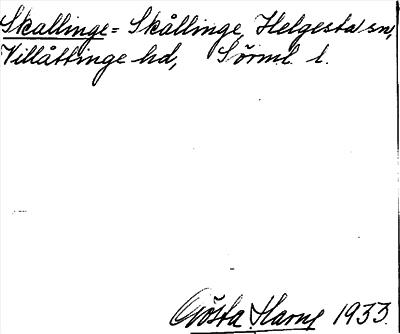 Skallinge = Skållinge, Helgesta sn,
Villåttinge hd, Sörml. l.
Gösta Harng 1933.